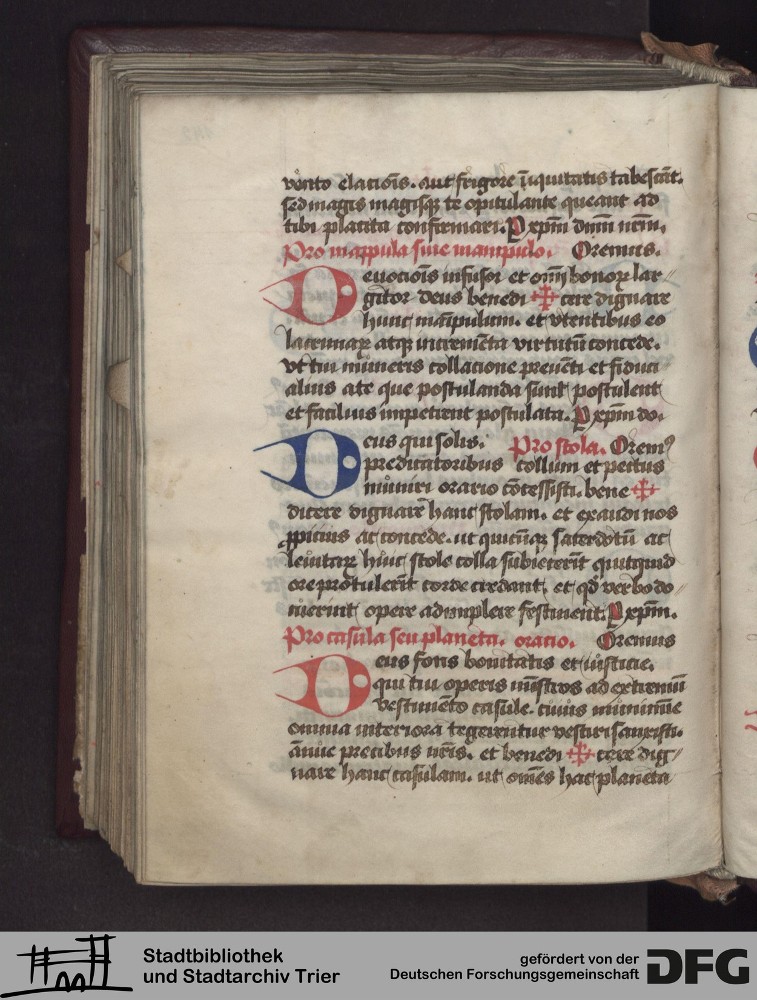 vento elacioīs. aut frigore iniquitatis tabescāt.
sed magis magisqȝ te opitulante queant ad
tibi placita confirmari. Pxpm̄ dnm̄ nrm̄.
Pro mappula siue manipulo. Oremus.
Deuociois infusor et omī bonoꝝ lar⸗
gitor deus benedi ✠ cere dignare
hunc manipulum. et vtentibus eo
lacrimaꝝ atqȝ incremēta virtutū concede.
vt tui muneris collacione preuēti et fiduci
alius a te que postulanda sunt postulent
et facilius impetrent postulata. Pxpm̄ do.
Deus qui solis. Pro stola. Orem⁹
predicatoribus collum et pectus
muniri orario cōcessisti. bene ✠
dicere dignare hanc stolam. et exaudi nos
ꝓpicius ac concede. ut quicūqȝ sacerdotū ac
leuitaꝝ huic stole colla subiecerīt quicquid
ore protulerīt corde credant. et qđ verbo do
cuerint opere adimplere festinent. Pxpm̄.
Pro casula seu planeta. oracio. Oremus
Deus fons bonitatis et iusticie.
qui tui operis mīstros ad extremū
vestimēto casule. cuius munimīe
omnia interiora tegerentur vestiri sanxisti.
annue precibus nrīs. et benedi ✠ cere dig⸗
nare hanc casulam. ut omēs hac planeta
Stadtbibliothek
und Stadtarchiv Trier
gefördert von der
Deutschen Forschungsgemeinschaft
DFG